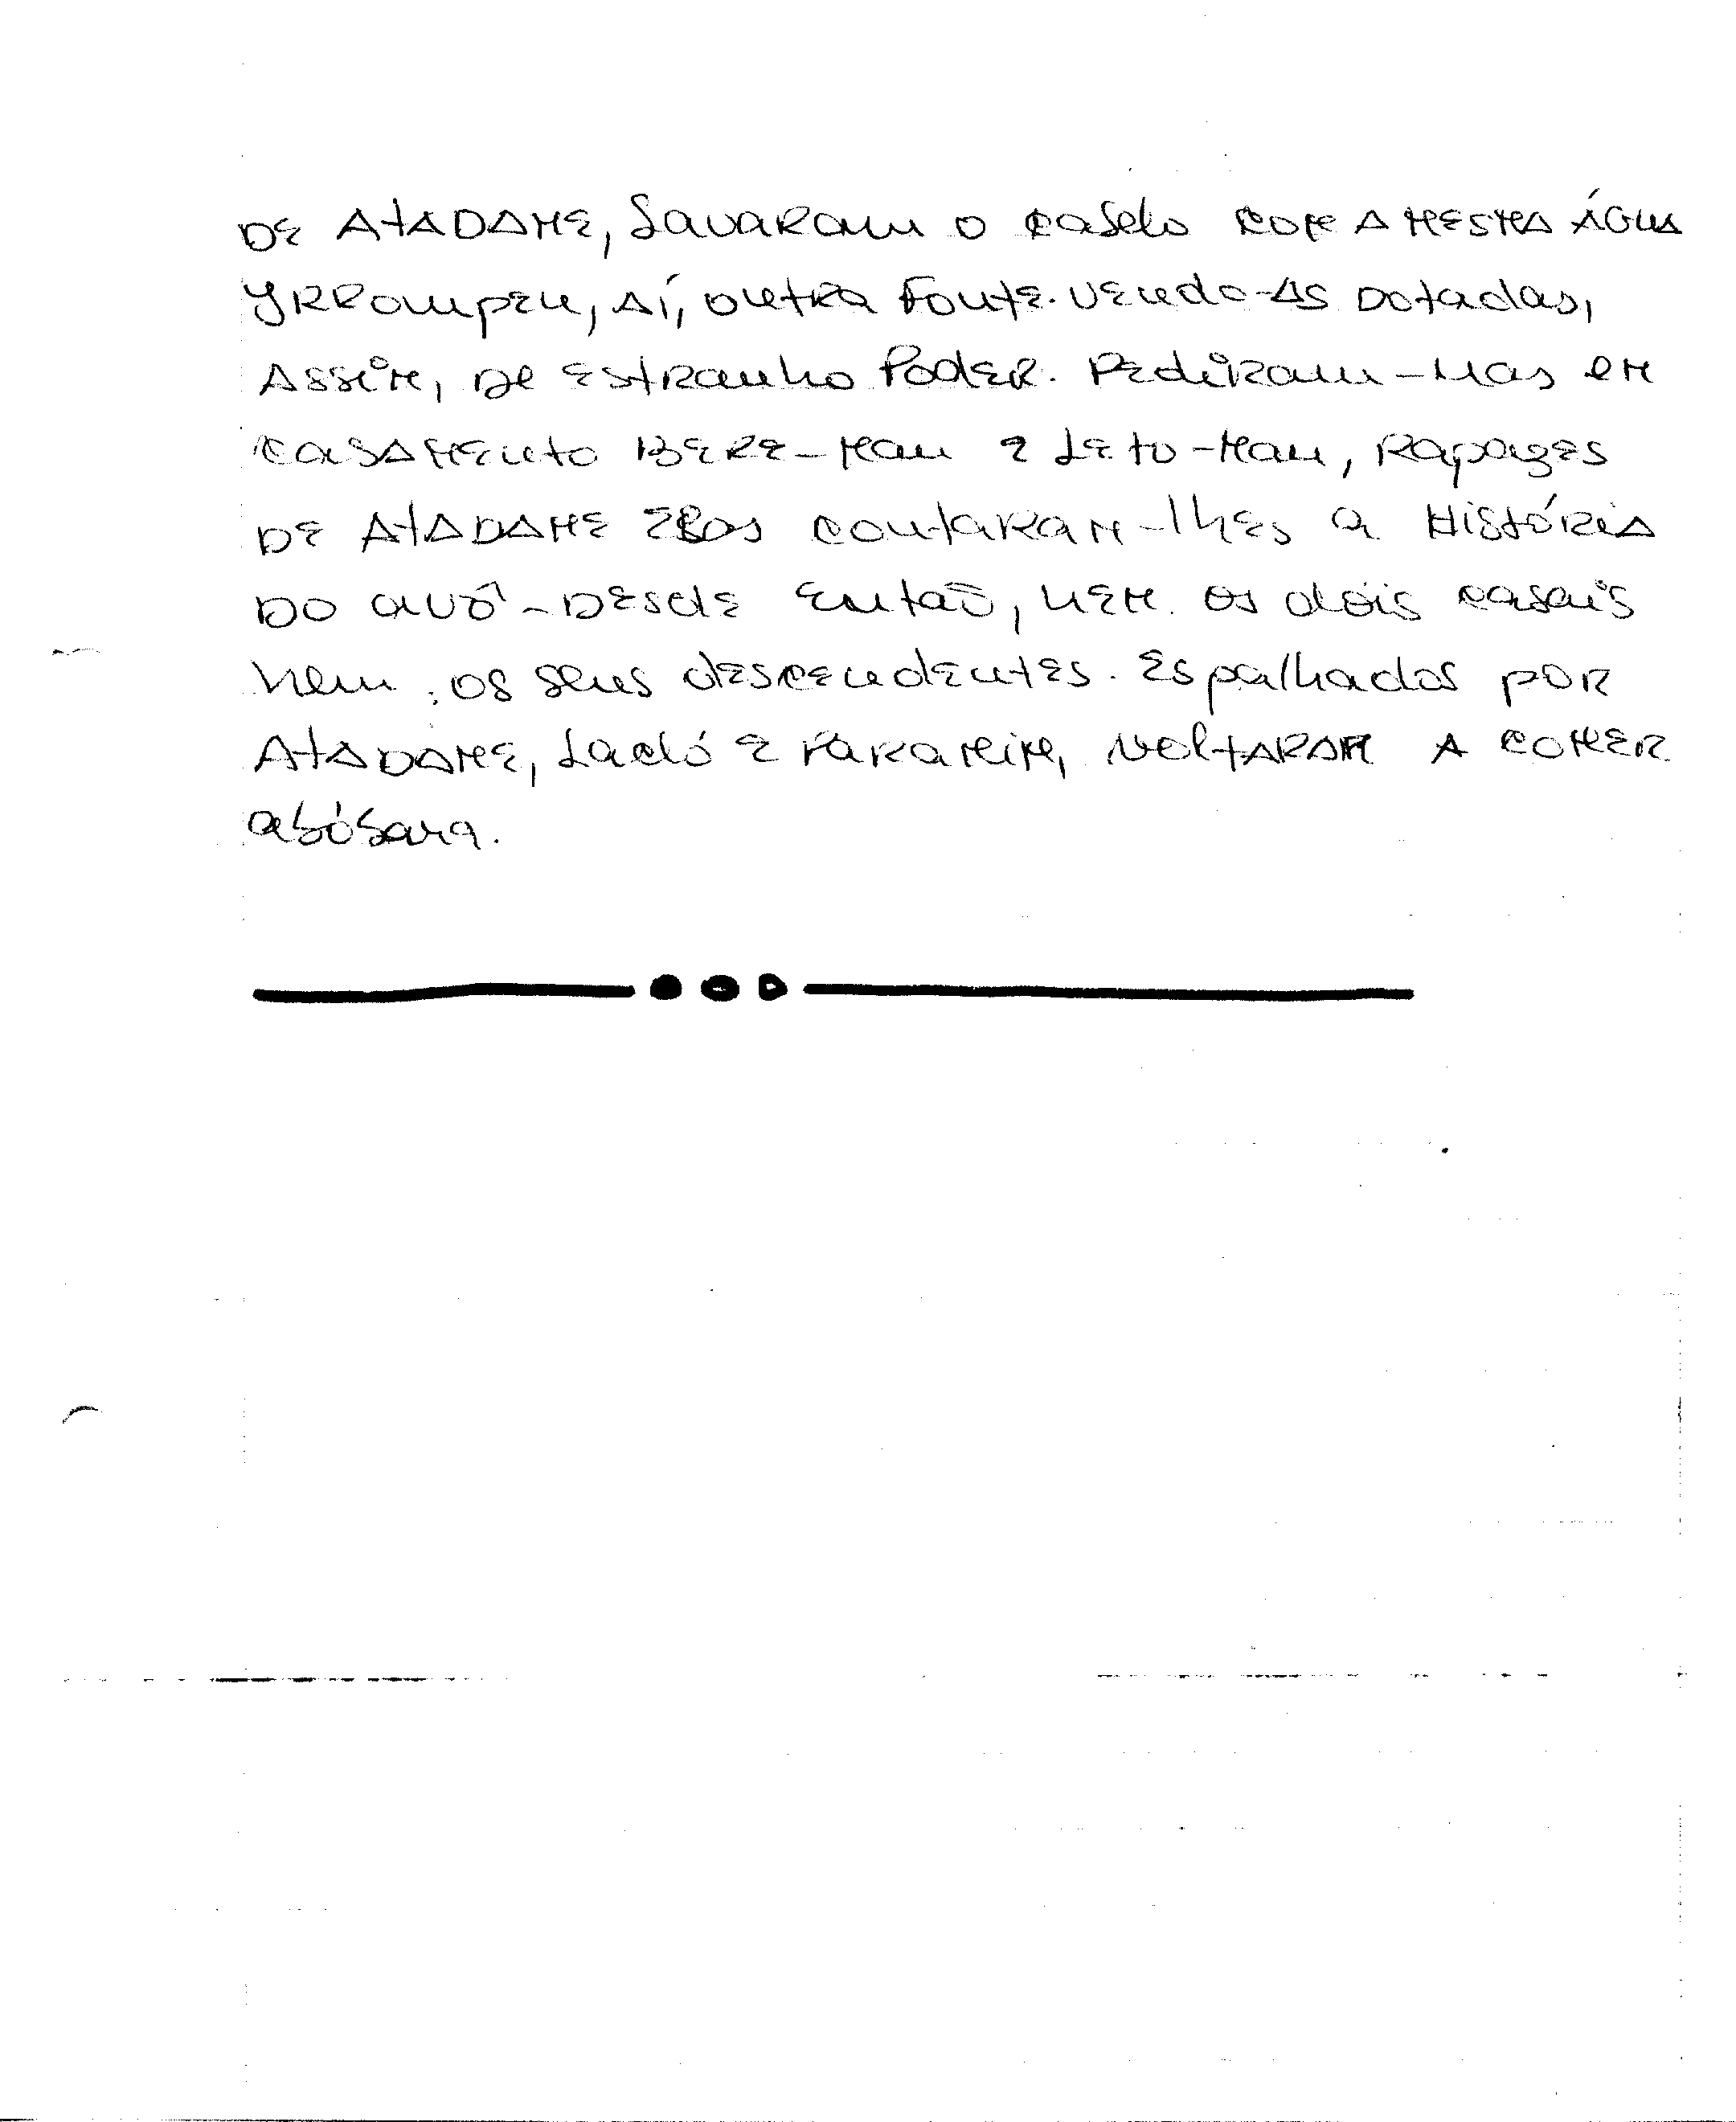 DE ATADAME, Lavaram o cabelo com a mesma água
Yrrompeu, aí, outra Fonte. Vendo-as Dotadas,
Assim, de estranho Poder. Pediram-nas em
casamento Bere-Mau e Leto-Mau, Rapazes
DE ATADAME Elas contaram-lhes a História
do avô-Desde Então, nem os dois casais
nem os seus descendentes. Espalhados por
ATADAME, Lacló e Maraneim, voltaram a comer
abóbara.